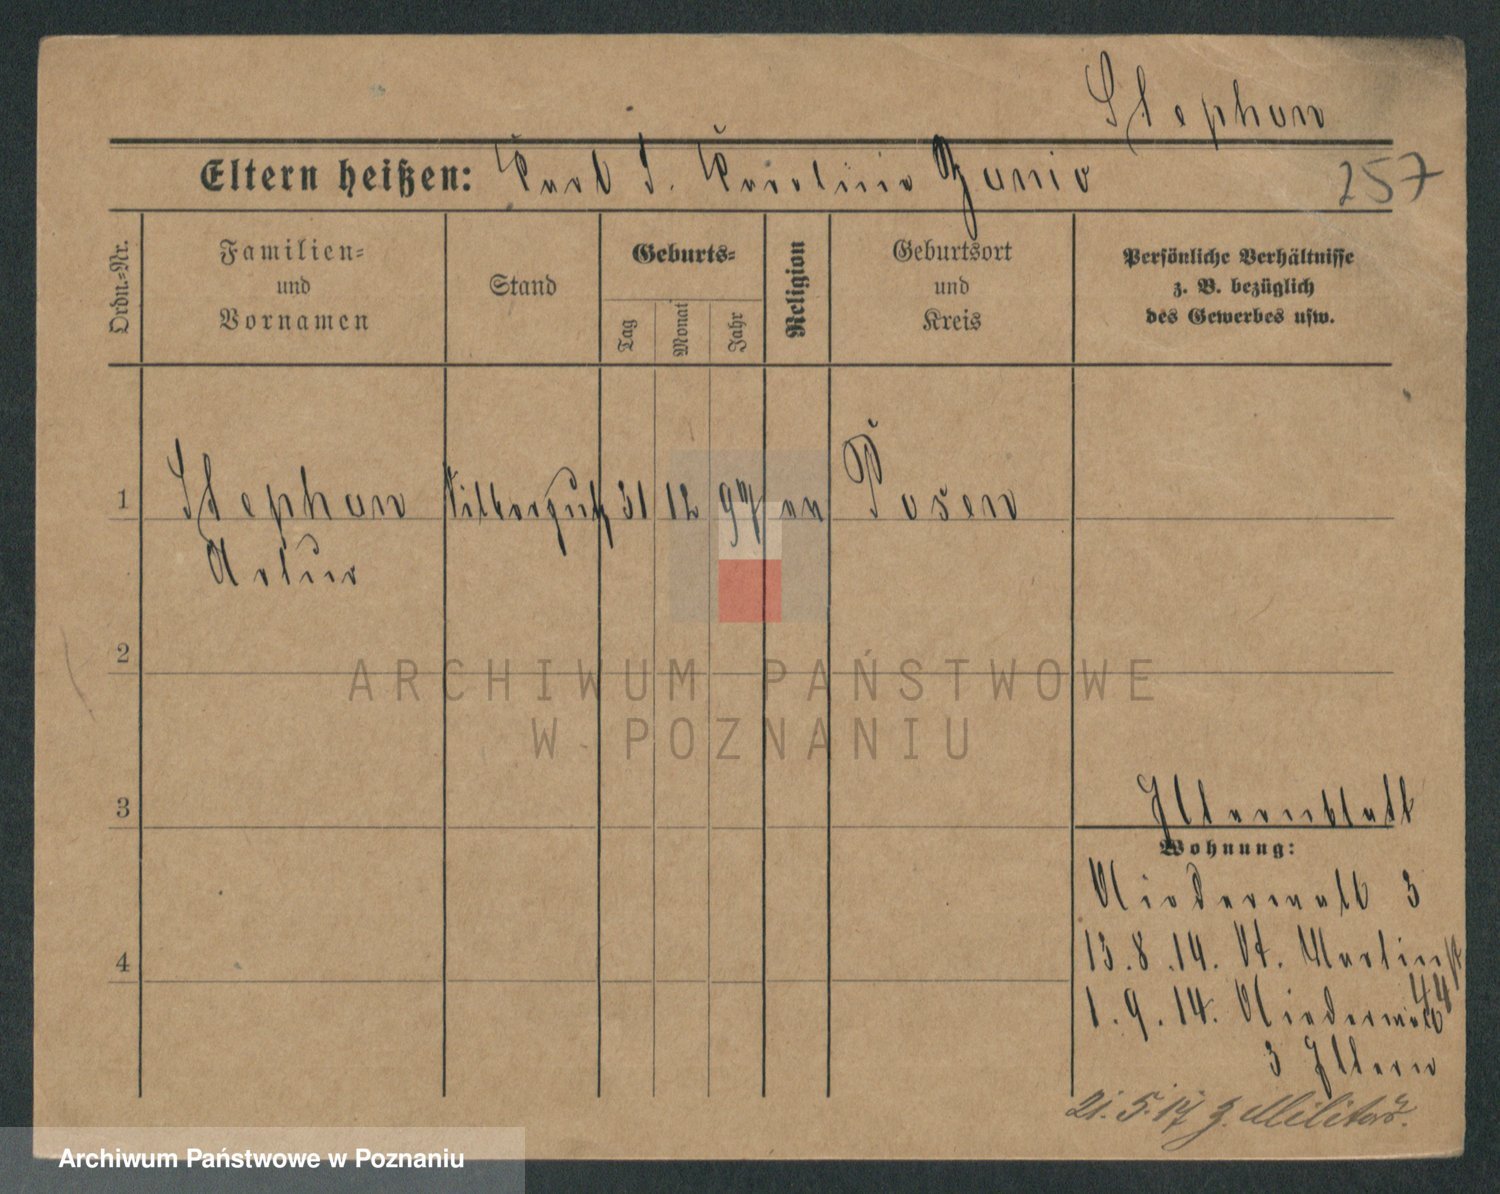 Stephan
Eltern heißen: Karl u. Karoline
257
Ordn.-Nr.
Familien-
und
Vornamen
Stand
Geburts-
Tag
Monat
Jahr
Religion
Geburtsort
und
Kreis
Persönliche Verhältnisse
z. B. bezüglich
des Gewerbes usw.
1 Stephan 31 12 97 Posen
Artur
2
3
4
ARCHIWUM PAŃSTWOWE
W POZNANIU
Elternblatt
Wohnung:
Niederwall 3
13.8.14. St. Martinstr
44
1.9.14. Niederwall
3 Eltern
21.5.17 z. Militär.
Archiwum Państwowe w Poznaniu